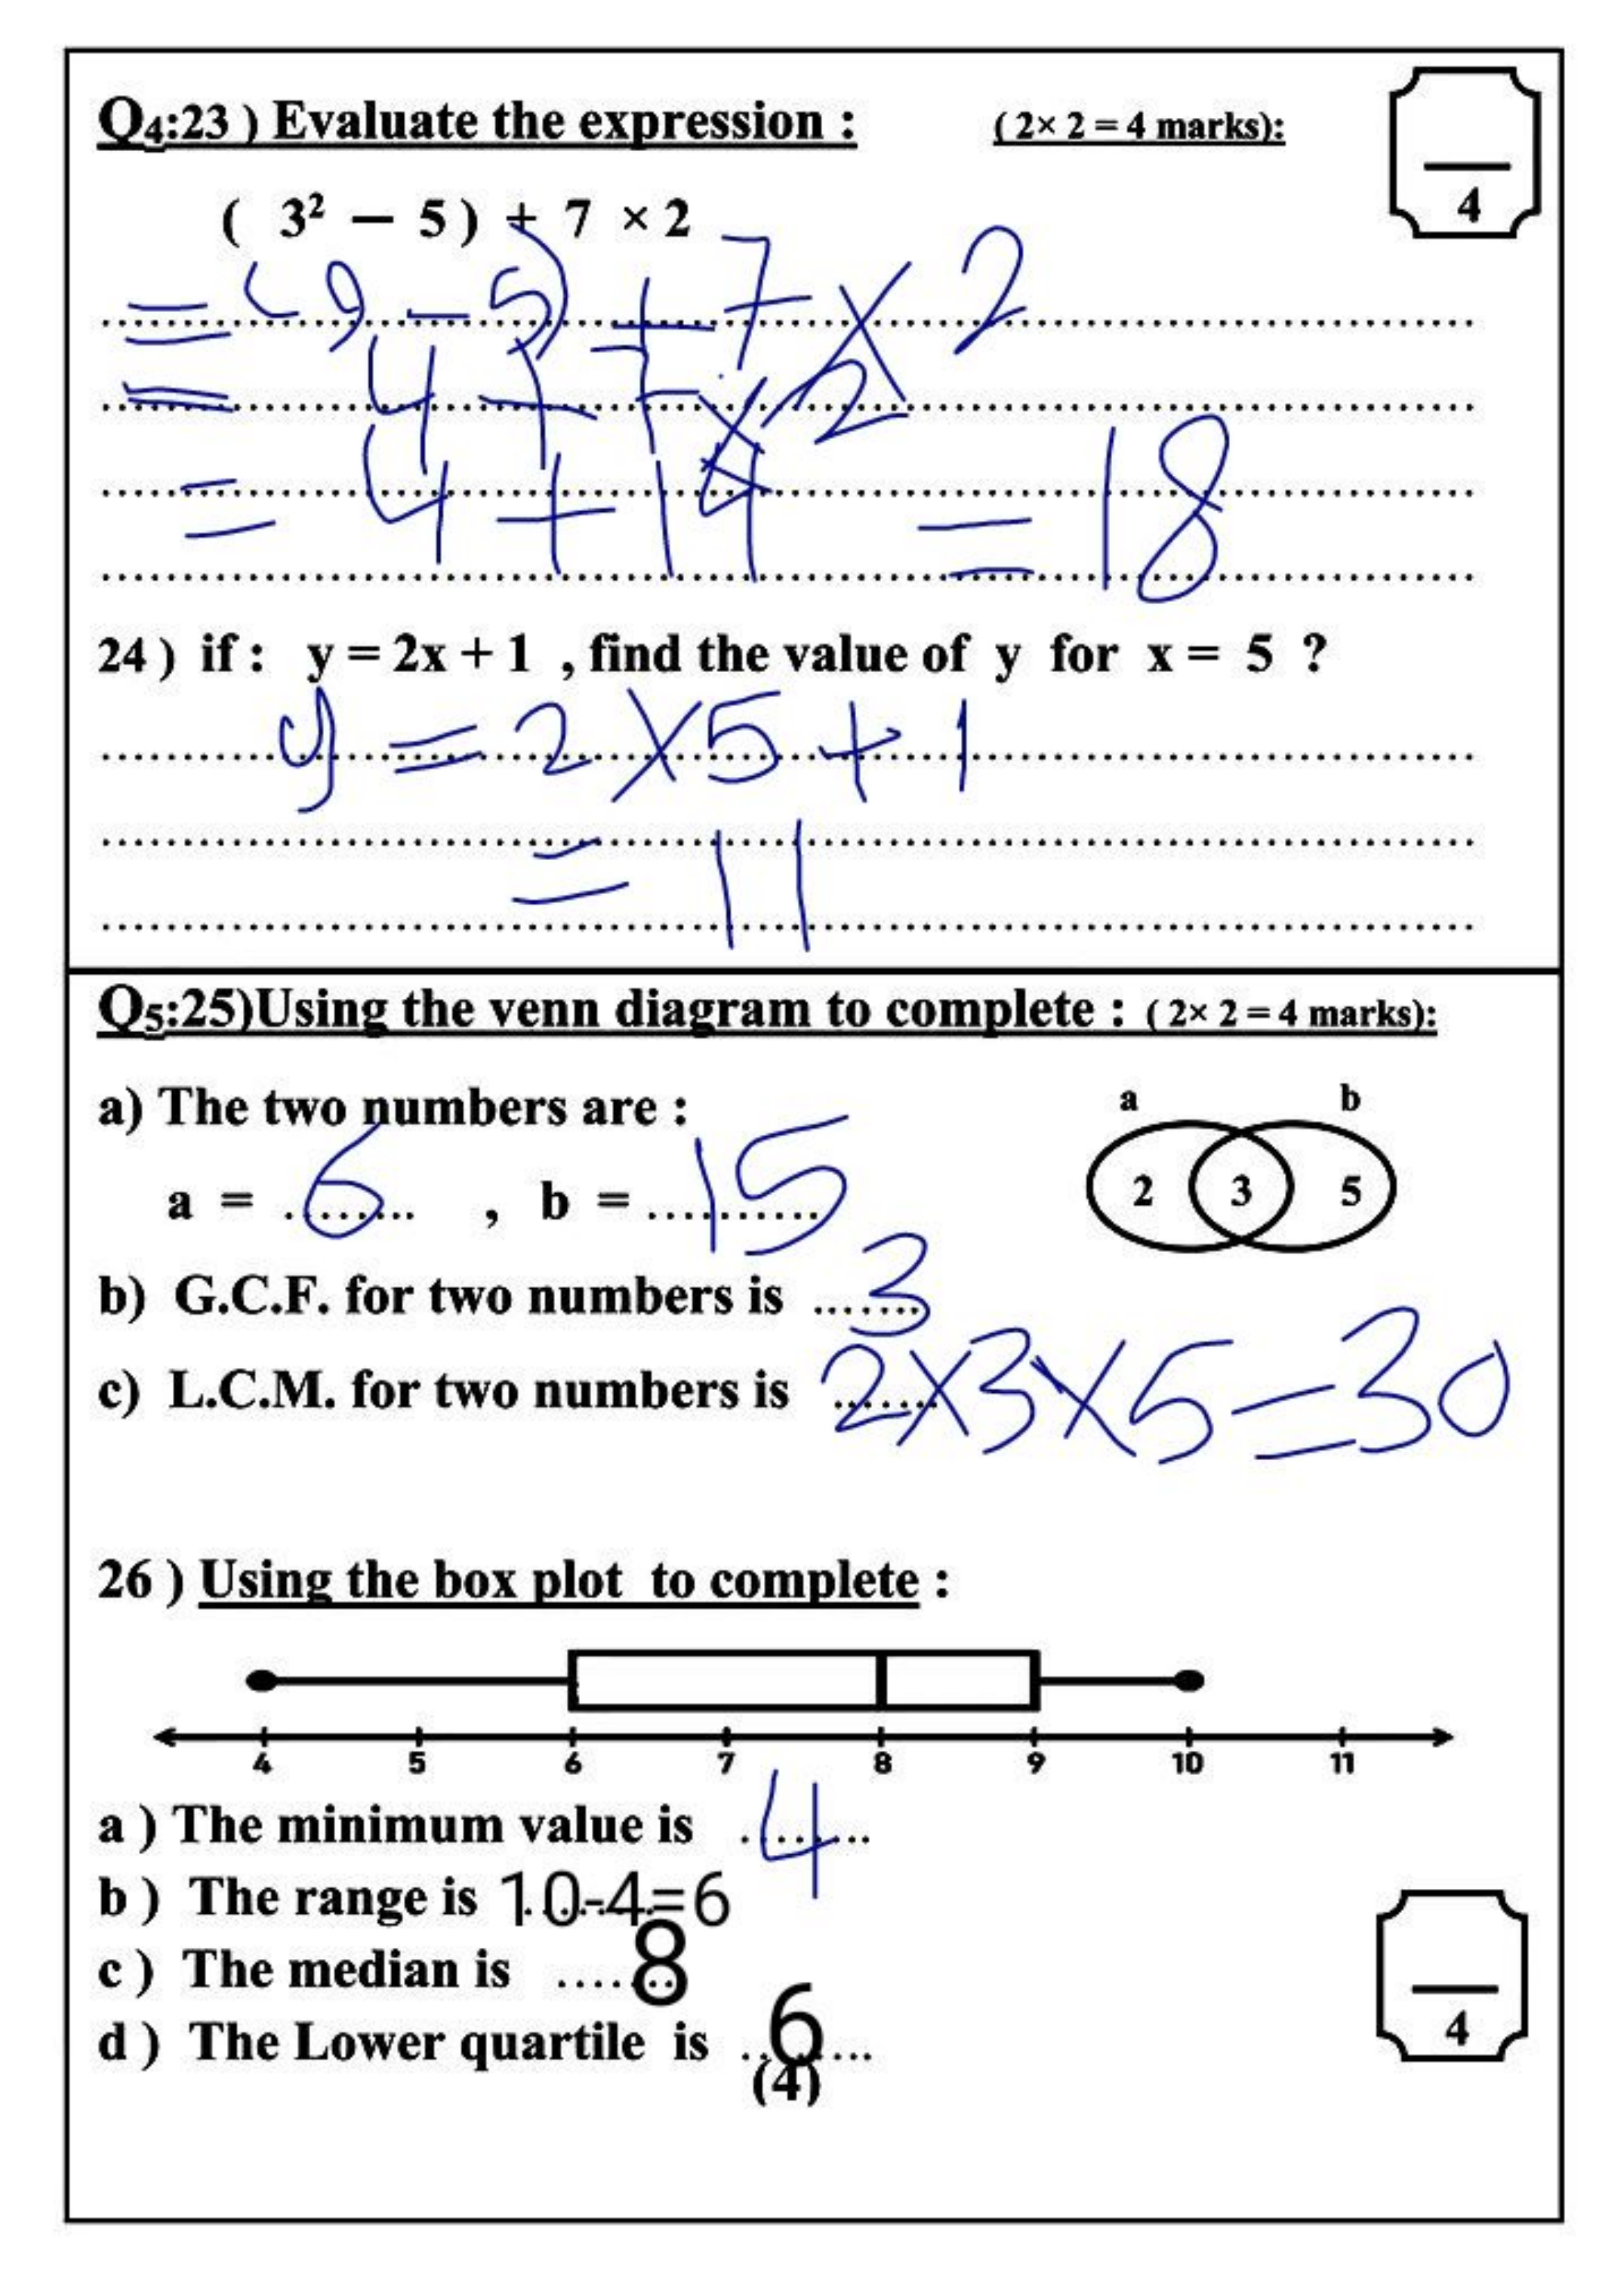 Q4:23 ) Evaluate the expression : ( 2× 2 = 4 marks):
4
( 3² − 5 ) + 7 × 2
= (9 − 5) + 7 × 2
= 4 + 7 × 2
= 4 + 14 = 18
24 ) if : y = 2x + 1 , find the value of y for x = 5 ?
y = 2 × 5 + 1
= 11
Q5:25)Using the venn diagram to complete : ( 2× 2 = 4 marks):
a) The two numbers are :
a b
a = 6 , b = 15
2 3 5
b) G.C.F. for two numbers is 3
c) L.C.M. for two numbers is 2×3×5=30
26 ) Using the box plot to complete :
4 5 6 7 8 9 10 11
a ) The minimum value is 4
b ) The range is 10-4=6
c ) The median is 8
d ) The Lower quartile is 6
4
(4)